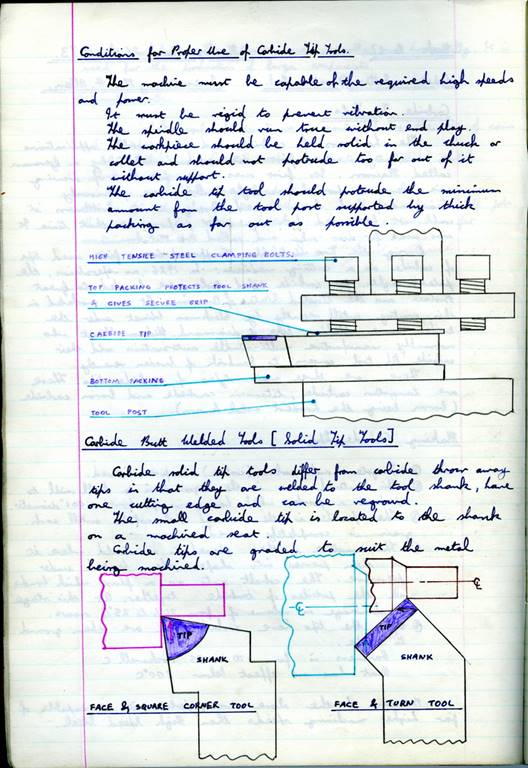 Conditions for Proper Use of Carbide Tip Tools.
The machine must be capable of the required high speeds
and power.
It must be rigid to prevent vibration.
The spindle should run true without end play.
The workpiece should be held solid in the chuck or
collet and should not protrude too far out of it
without support.
The carbide tip tool should protrude the minimum
amount from the tool post supported by thick
packing as far out as possible.
HIGH TENSILE STEEL CLAMPING BOLTS.
TOP PACKING PROTECTS TOOL SHANK
& GIVES SECURE GRIP
CARBIDE TIP
BOTTOM PACKING
TOOL POST
Carbide Butt Welded Tools [Solid Tip Tools]
Carbide solid tip tools differ from carbide throw away
tips in that they are welded to the tool shank, have
one cutting edge and can be reground.
The small carbide tip is located to the shank
on a machined seat.
Carbide tips are graded to suit the metal
being machined.
TIP
SHANK
FACE & SQUARE CORNER TOOL
TIP
SHANK
FACE & TURN TOOL